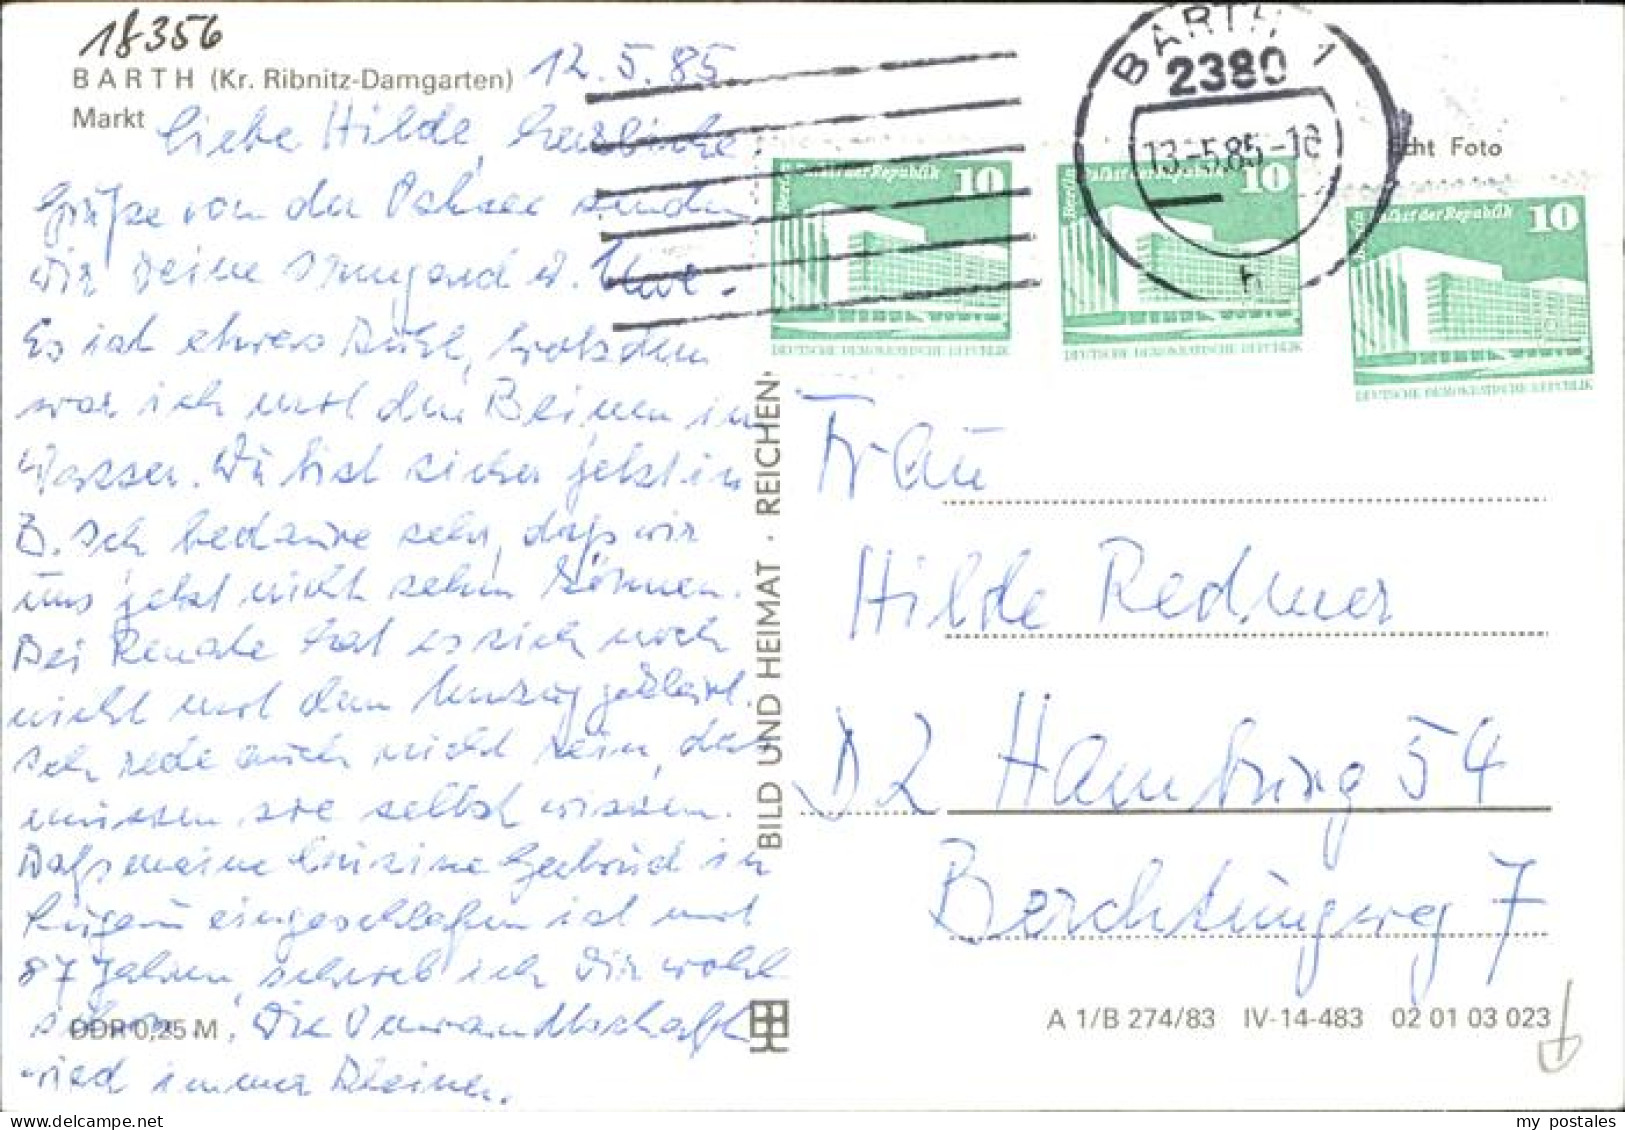 18356
BARTH (Kr. Ribnitz-Damgarten)
Markt
12.5.85
Liebe Hilde, herzliche
Grüße von der Ostsee senden
wir Deine Irmgard u.
Es ist etwas kühl, trotzdem
war ich mit den Beinen im
Wasser. Du bist sicher jetzt in
B. Ich bedaure sehr, daß wir
uns jetzt nicht sehen können.
Bei Renate hat es sich noch
nicht mit dem Umzug geklärt.
Ich rede auch nicht rein, das
müssen sie selbst wissen.
Daß meine Cousine Gertrud in
eingeschlafen ist mit
87 Jahren, schrieb ich Dir wohl
schon. Die Verwandtschaft
wird immer kleiner.
DDR 0,25 M
BILD UND HEIMAT · REICHEN
BARTH 1
2380
13.-5.85-18
h
Echt Foto
Berlin Palast der Republik 10
DEUTSCHE DEMOKRATISCHE REPUBLIK
Berlin Palast der Republik 10
DEUTSCHE DEMOKRATISCHE REPUBLIK
Berlin Palast der Republik 10
DEUTSCHE DEMOKRATISCHE REPUBLIK
Frau
Hilde Redmer
D2 Hamburg 54
Berchtungweg 7
A 1/B 274/83 IV-14-483 02 01 03 023
my postales